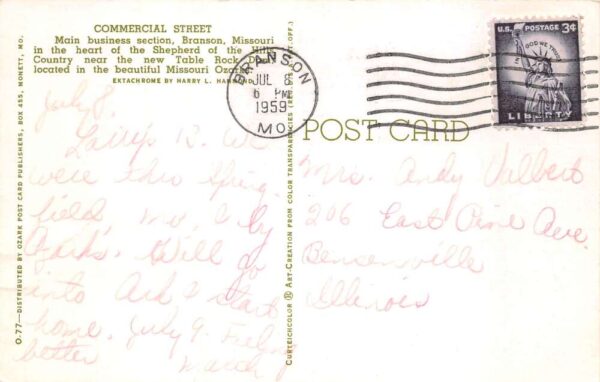 COMMERCIAL STREET
Main business section, Branson, Missouri
in the heart of the Shepherd of the Hills
Country near the new Table Rock Dam
located in the beautiful Missouri Ozarks
EXTACHROME BY HARRY L.
BRANSON
JUL 8
6 PM
1959
MO.
U.S. POSTAGE 3¢
IN GOD WE TRUST
LIBERTY
POST CARD
O-77—DISTRIBUTED BY OZARK POST CARD PUBLISHERS, BOX 455, MONETT, MO.
CURTEICHCOLOR ® ART-CREATION FROM COLOR TRANSPARENCIES
July 8,
We
were thru Spring
field, Mo, & by
Ozarks. Will go
into Ark & start
home, July 9. Feeling
better
Mrs. Andy
206 East Pine Ave.
Bensenville
Illinois